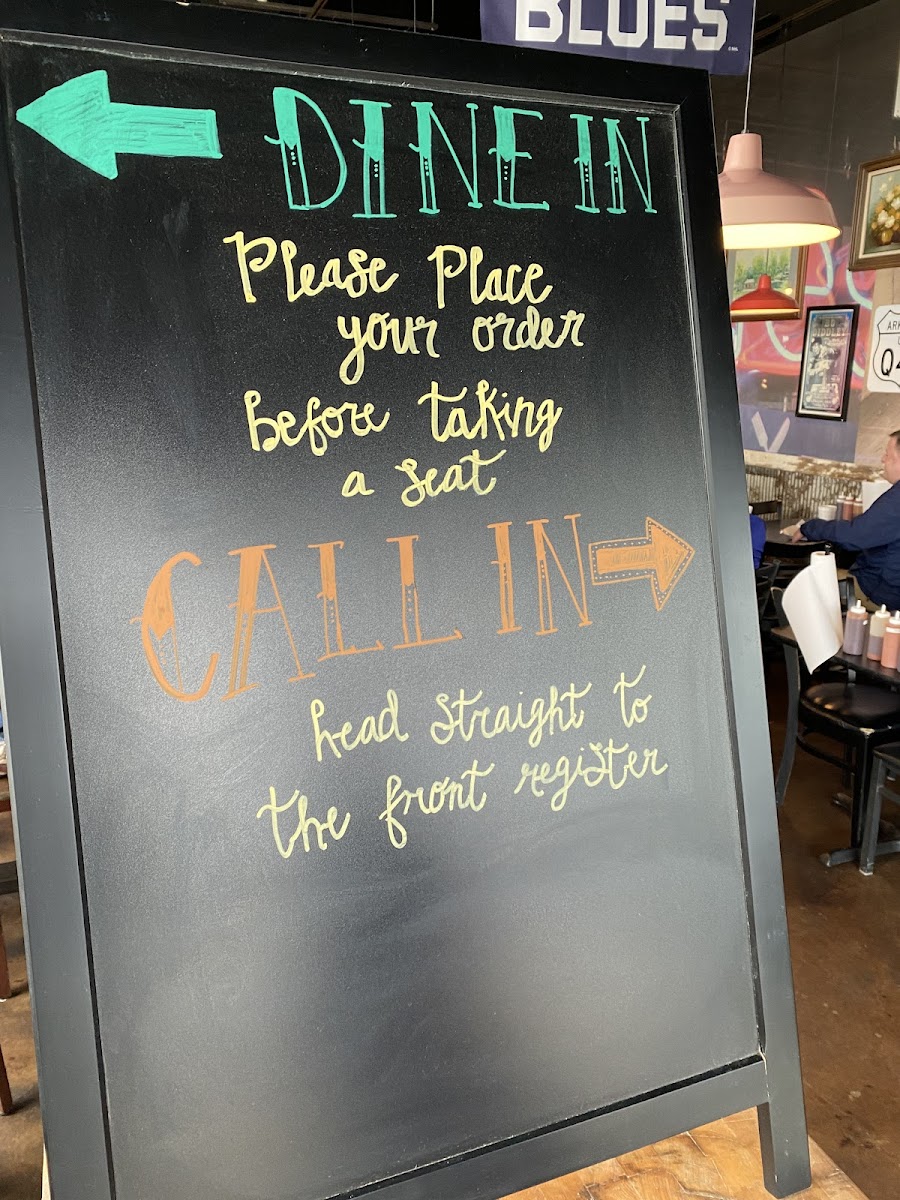 BLUES
DINE IN
Please Place
your order
before taking
a seat
CALL IN
head straight to
the front register